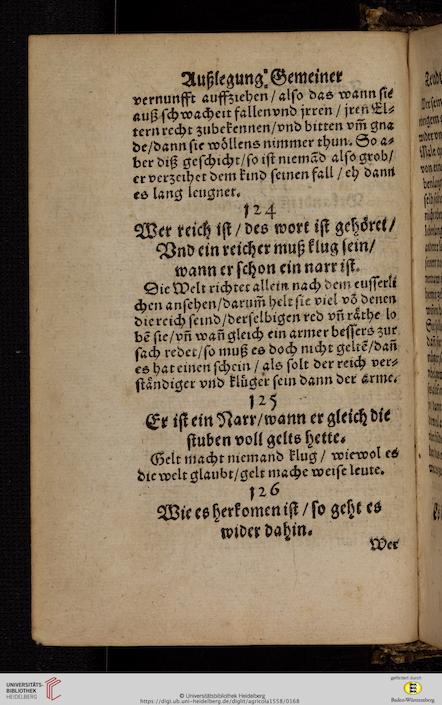 Außlegung Gemeiner
vernunfft auffziehen / also das wann sie
auß schwacheit fallen vnd jrren / jren El⸗
tern recht zubekennen / vnd bitten vm̃ gna
de / dann sie wöllens nimmer thun. So a⸗
ber diß geschicht / so ist niemãd also grob /
er verzeihet dem kind seinen fall / eh dann
es lang leugnet.
124
Wer reich ist / des wort ist gehöret /
Vnd ein reicher muß klug sein /
wann er schon ein narr ist.
Die Welt richtet allein nach dem eusserli
chen ansehen / darum̃ helt sie viel võ denen
die reich seind / derselbigen red vñ räthe lo
bẽ sie / vñ wañ gleich ein armer bessers zur
sach redet / so muß es doch nicht geltẽ / dañ
es hat einen schein / als solt der reich ver⸗
ständiger vnd klüger sein dann der arme.
125
Er ist ein Narr / wann er gleich die
stuben voll gelts hette.
Gelt macht niemand klug / wiewol es
die welt glaubt / gelt mache weise leute.
126
Wie es herkomen ist / so geht es
wider dahin.
Wer
UNIVERSITÄTS-
BIBLIOTHEK
HEIDELBERG
© Universitätsbibliothek Heidelberg
https://digi.ub.uni-heidelberg.de/diglit/agricola1558/0168
gefördert durch
Baden-Württemberg